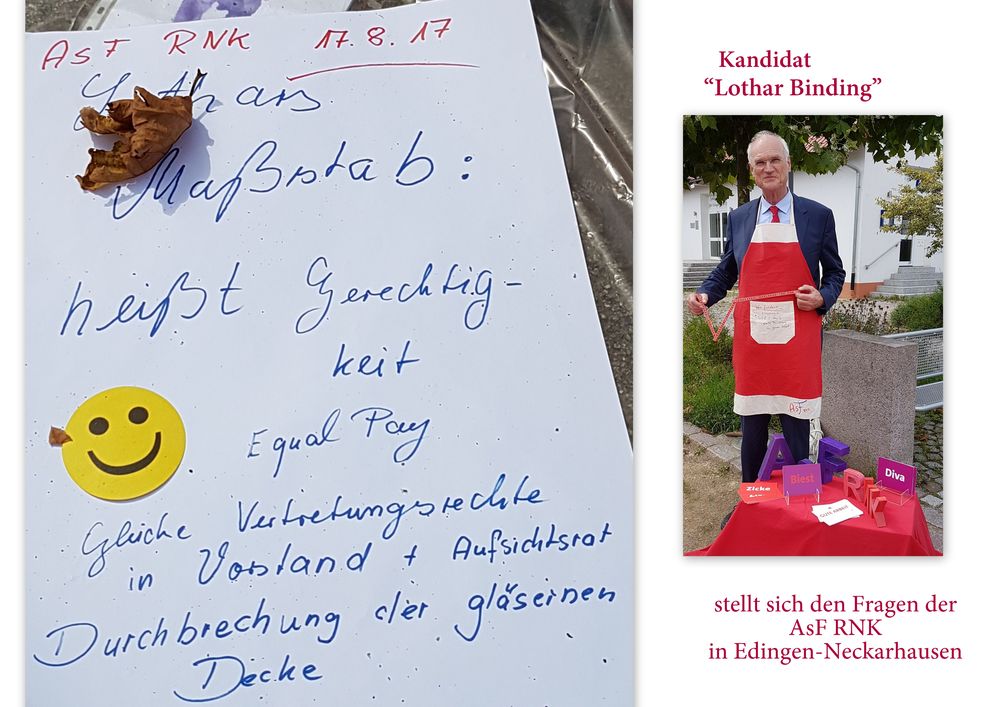 AsF RNK 17.8.17
Lothars
Maßstab:
heißt Gerechtig-
keit
Equal Pay
Gleiche Vertretungsrechte
in Vorstand + Aufsichtsrat
Durchbrechung der gläsernen
Decke
Kandidat
“Lothar Binding”
AsF
Zicke
Biest
Diva
GUTE ARBEIT
stellt sich den Fragen der
AsF RNK
in Edingen-Neckarhausen